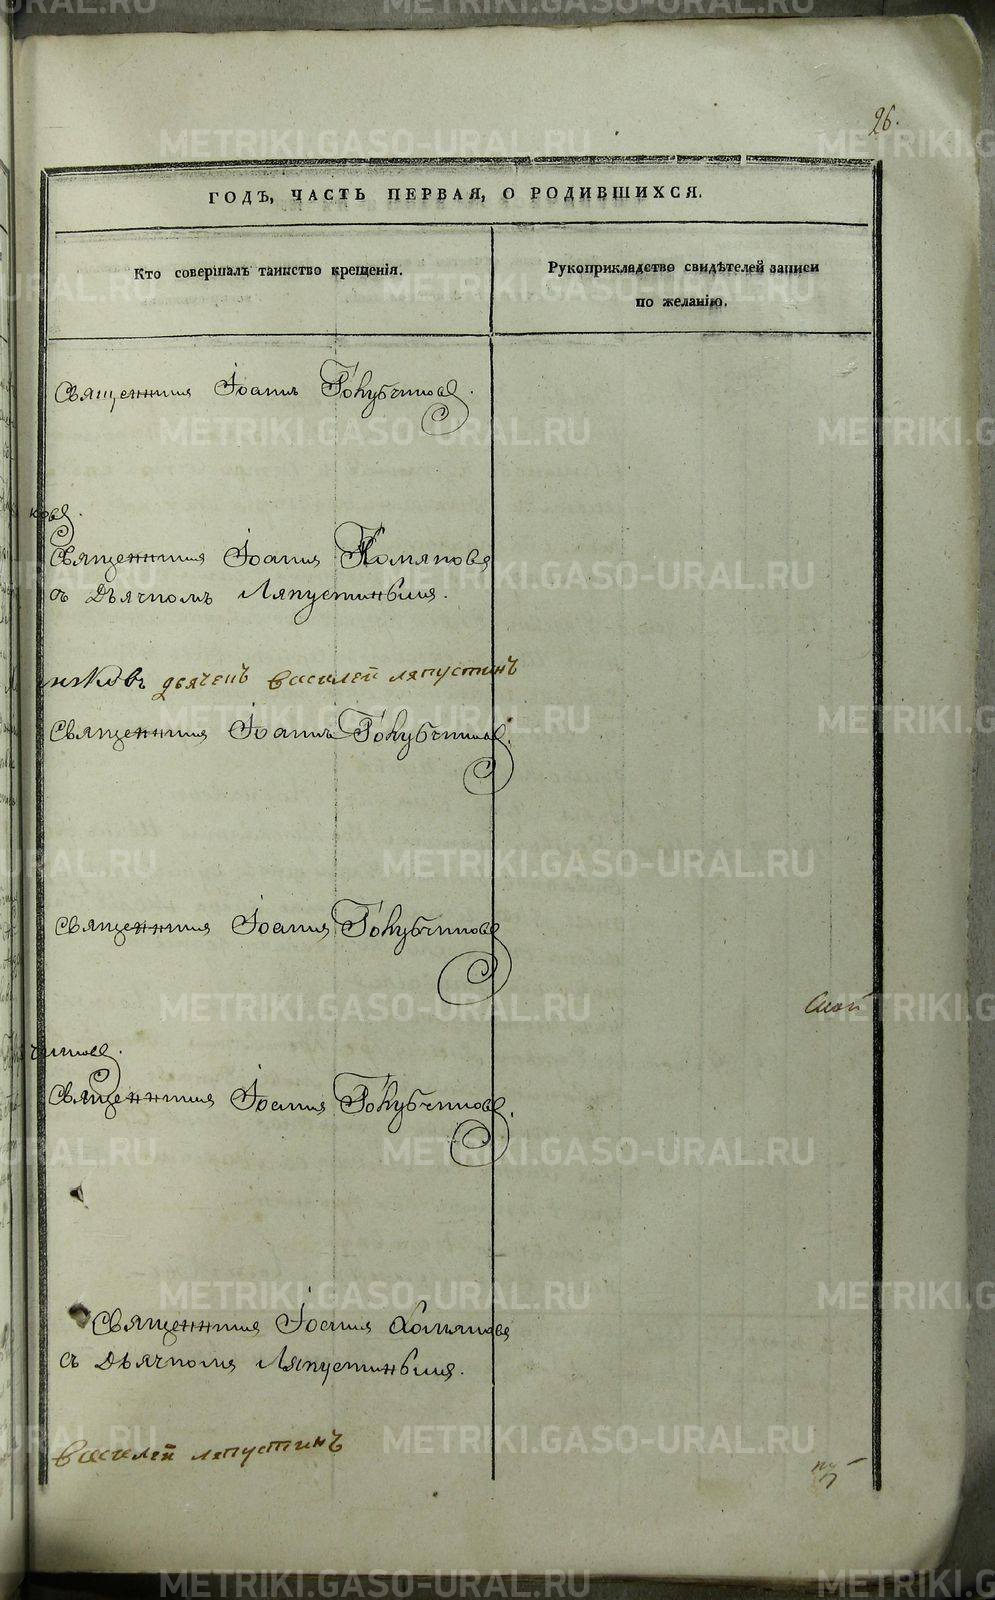 26.
ГОДЪ, ЧАСТЬ ПЕРВАЯ, О РОДИВШИХСЯ.
Кто совершалъ таинство крещенія.
Рукоприкладство свидѣтелей записи
по желанію.
Священникъ Іоаннъ Голубчиковъ.
ковъ.
Священникъ Іоаннъ Хомяковъ
съ Дьячкомъ Ляпустинымъ.
нковъ дьячекъ василей ляпустинъ
Священникъ Іоаннъ Голубчиковъ.
Священникъ Іоаннъ Голубчиковъ
чиковъ.
Священникъ Іоаннъ Голубчиковъ.
Священникъ Іоаннъ Хомяковъ
съ Дьячкомъ Ляпустинымъ.
василей ляпустинъ
METRIKI.GASO-URAL.RU